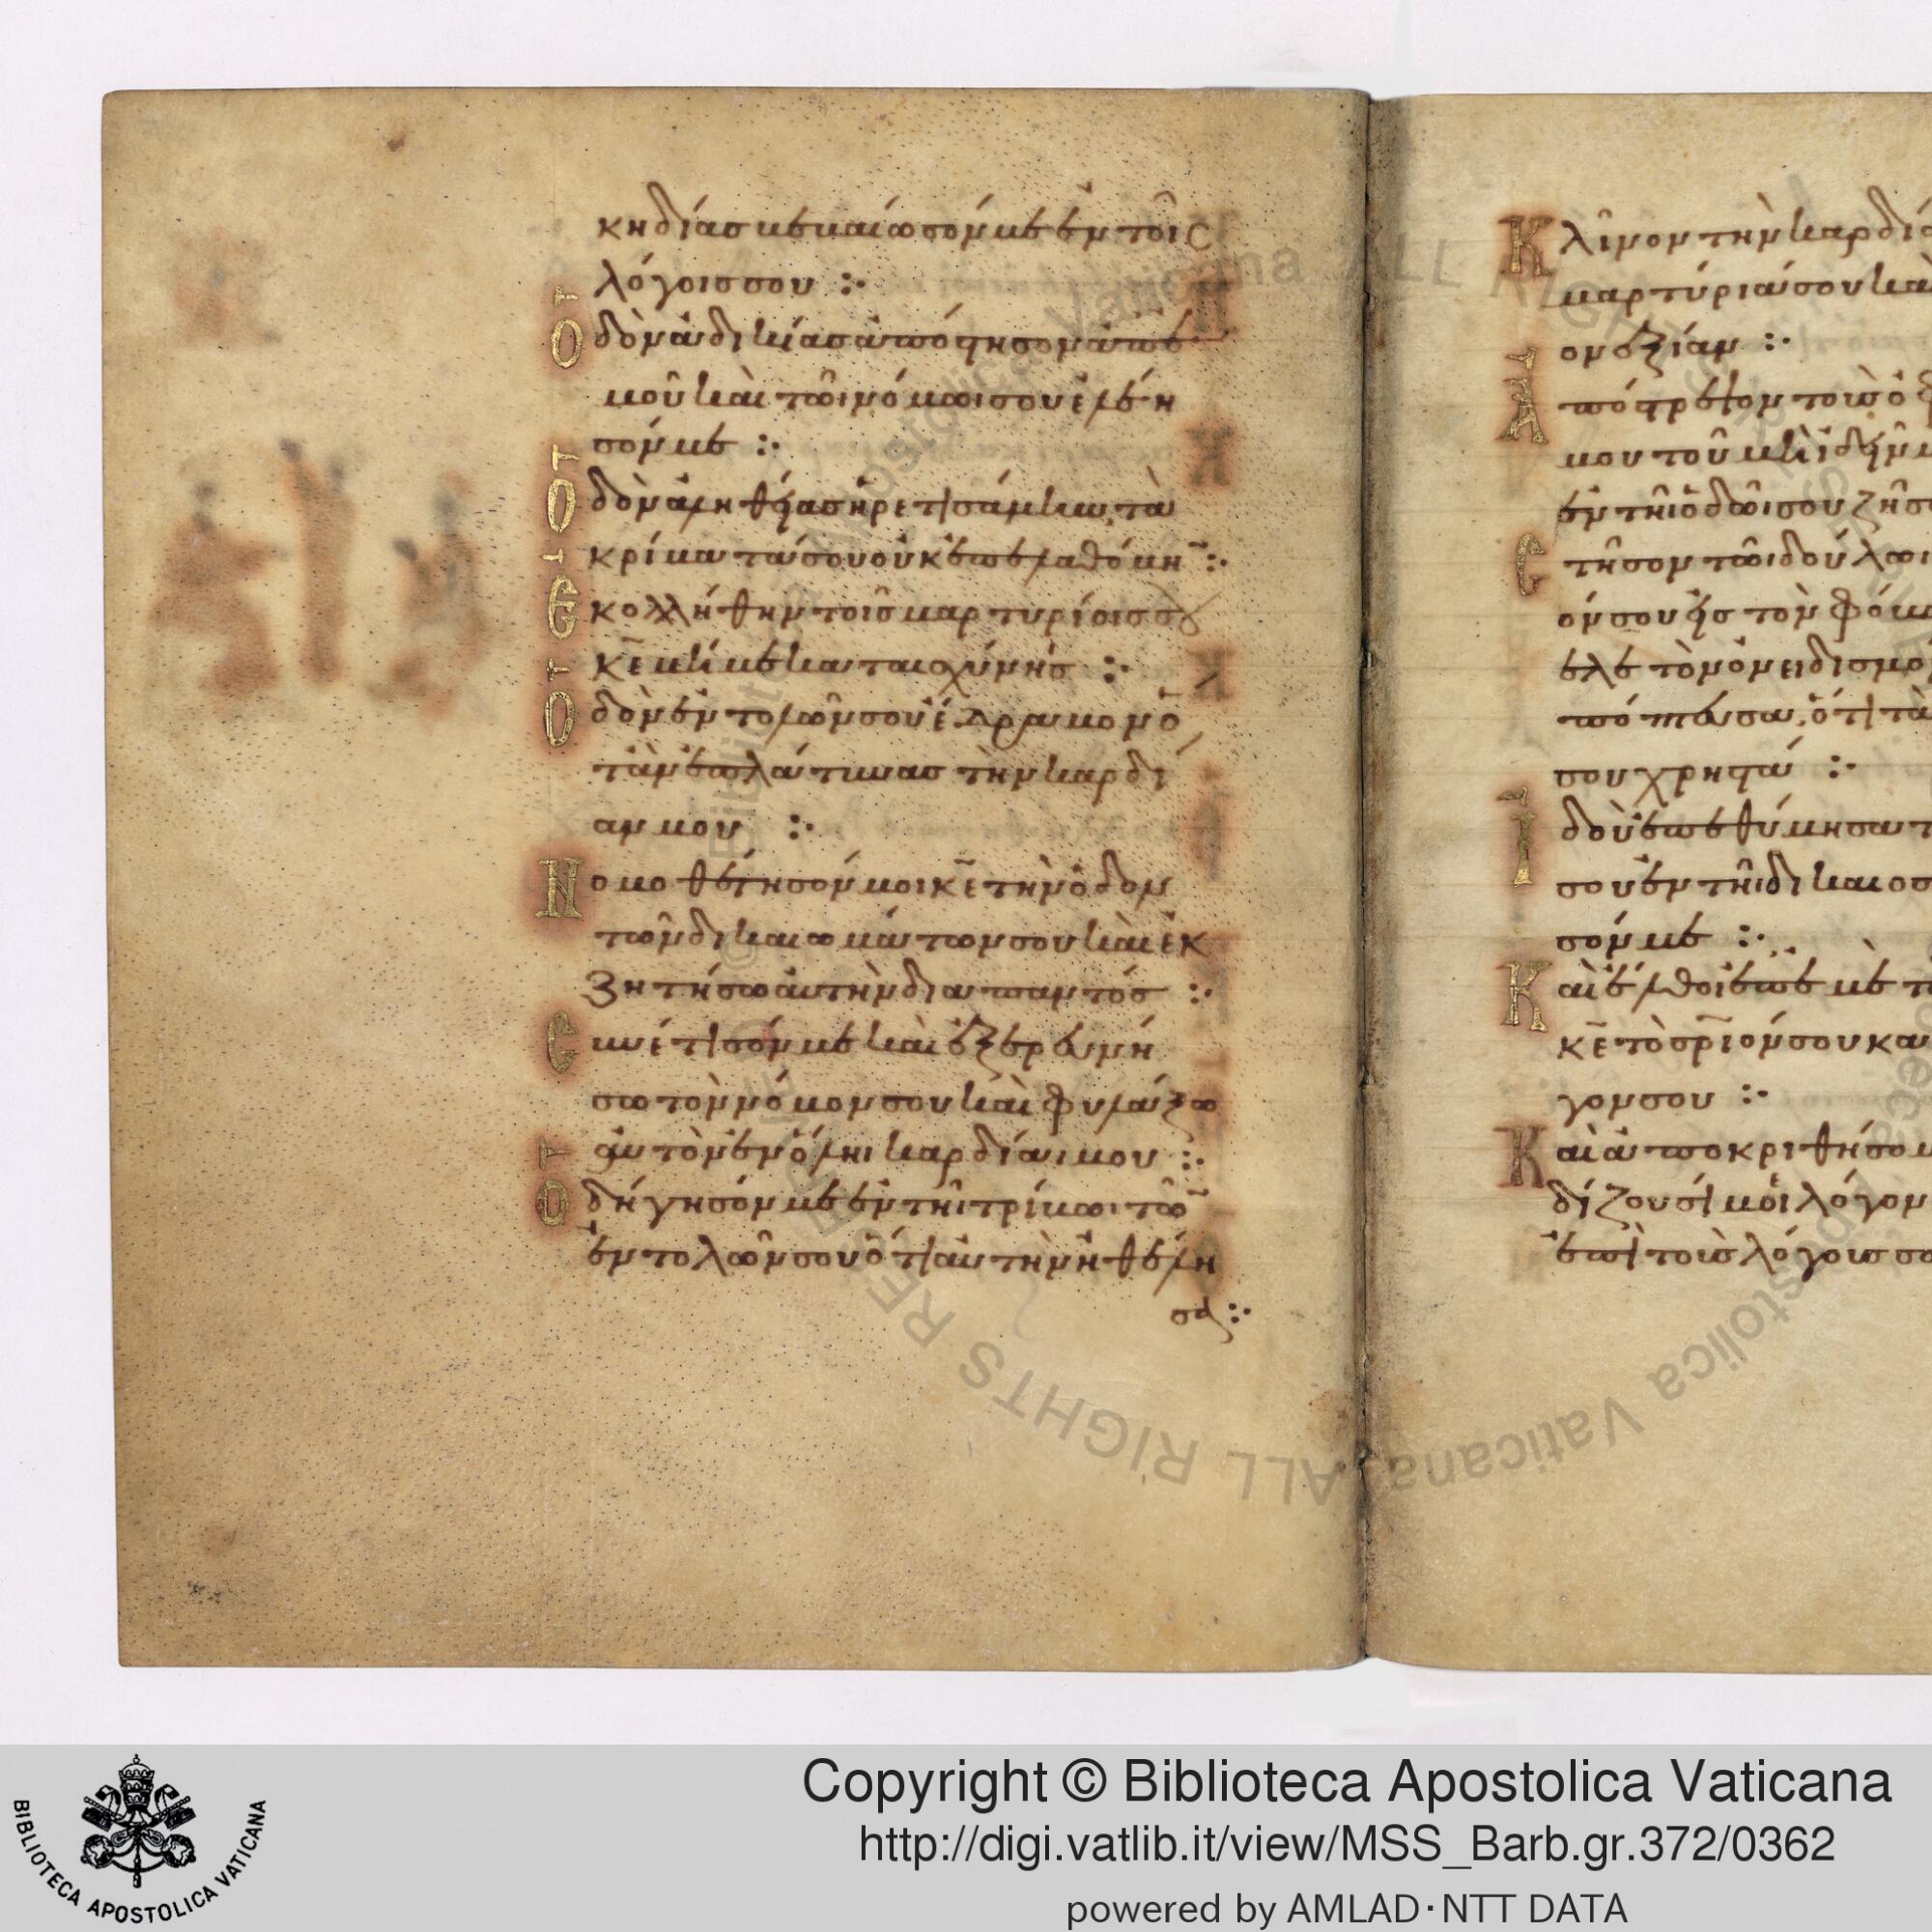 κηδίας με καὶ ὠσόν με ἐν τοῖς
λόγοις σου :·
Ὁδὸν ἀδικίας ἀπόστησον ἀπ' ἐ
μοῦ καὶ τῶι νόμωι σου ἐλέη
σόν με :·
Ὁδὸν ἀληθείας ἡρετισάμην, τὰ
κρίματά σου οὐκ ἐπελαθόμην :·
Ἐκολλήθην τοῖς μαρτυρίοις σου
κε μή με καταισχύνης :·
Ὁδὸν ἐντολῶν σου ἔδραμον ὅ
ταν ἐπλάτυνας τὴν καρδί
αν μου :·
Νομοθέτησόν μοι κε τὴν ὁδὸν
τῶν δικαιωμάτων σου καὶ ἐκ
ζητήσω αὐτὴν διαπαντός :·
Συνέτισόν με καὶ ἐξερευνή
σω τὸν νόμον σου καὶ φυλάξω
αὐτὸν ἐν ὅληι καρδίαι μου :·
Ὁδήγησόν με ἐν τῆι τρίβωι τῶν
ἐντολῶν σου ὅτι αὐτὴν ἠθέλη
σα :·
Κλῖνον τὴν καρδί
μαρτύριά σου καὶ
ονεξίαν :·
Ἀπόστρεψον τοὺς ὀ
μου τοῦ μὴ ἰδεῖν μ
ἐν τῆι ὁδῶι σου ζῆσ
Στῆσον τῶι δούλωι
όν σου εἰς τὸν φόβ
ελε τὸν ὀνειδισμό
πόπτευσα, ὅτι τὰ
σου χρηστά :·
Ἰδοὺ ἐπεθύμησα τ
σου ἐν τῆι δικαιοσ
σόν με :·
Καὶ ἔλθοι ἐπ' ἐμὲ τὸ
κε τὸ σριόν σου κα
γον σου :·
Καὶ ἀποκριθήσομ
δίζουσί μοι λόγον
ἐπὶ τοῖς λόγοις σο
Copyright © Biblioteca Apostolica Vaticana
http://digi.vatlib.it/view/MSS_Barb.gr.372/0362
powered by AMLAD·NTT DATA
BIBLIOTECA APOSTOLICA VATICANA